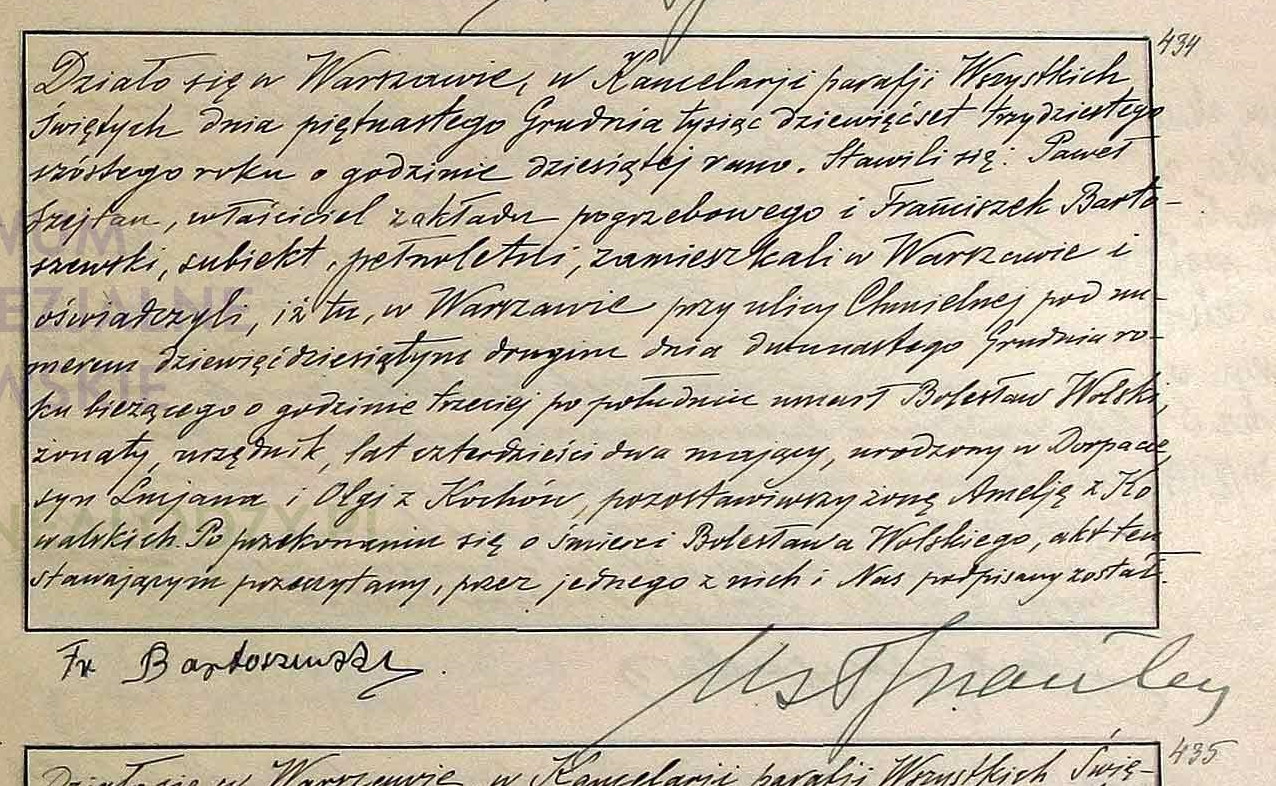 434
Działo się w Warszawie, w Kancelarji parafji Wszystkich
Świętych dnia piętnastego Grudnia tysiąc dziewięćset trzydziestego
szóstego roku o godzinie dziesiątej rano. Stawili się: Paweł
Szejtan, właściciel zakładu pogrzebowego i Franciszek Barto-
szewski, subiekt, pełnoletni, zamieszkali w Warszawie i
oświadczyli, iż tu, w Warszawie przy ulicy Chmielnej pod nu-
merem dziewięćdziesiątym drugim dnia dwunastego Grudnia ro-
ku bieżącego o godzinie trzeciej po południu umarł Bolesław Wolski,
żonaty, urzędnik, lat czterdzieści dwa mający, urodzony w Dorpacie,
syn Lucjana i Olgi z Kochów, pozostawiwszy żonę Amelję z Ko
walskich. Po przekonaniu się o śmierci Bolesława Wolskiego, akt ten
stawającym przeczytany, przez jednego z nich i Nas podpisany został.
Fr Bartoszewski.
435
Działo się w Warszawie, w Kancelarji parafji Wszystkich Świę-